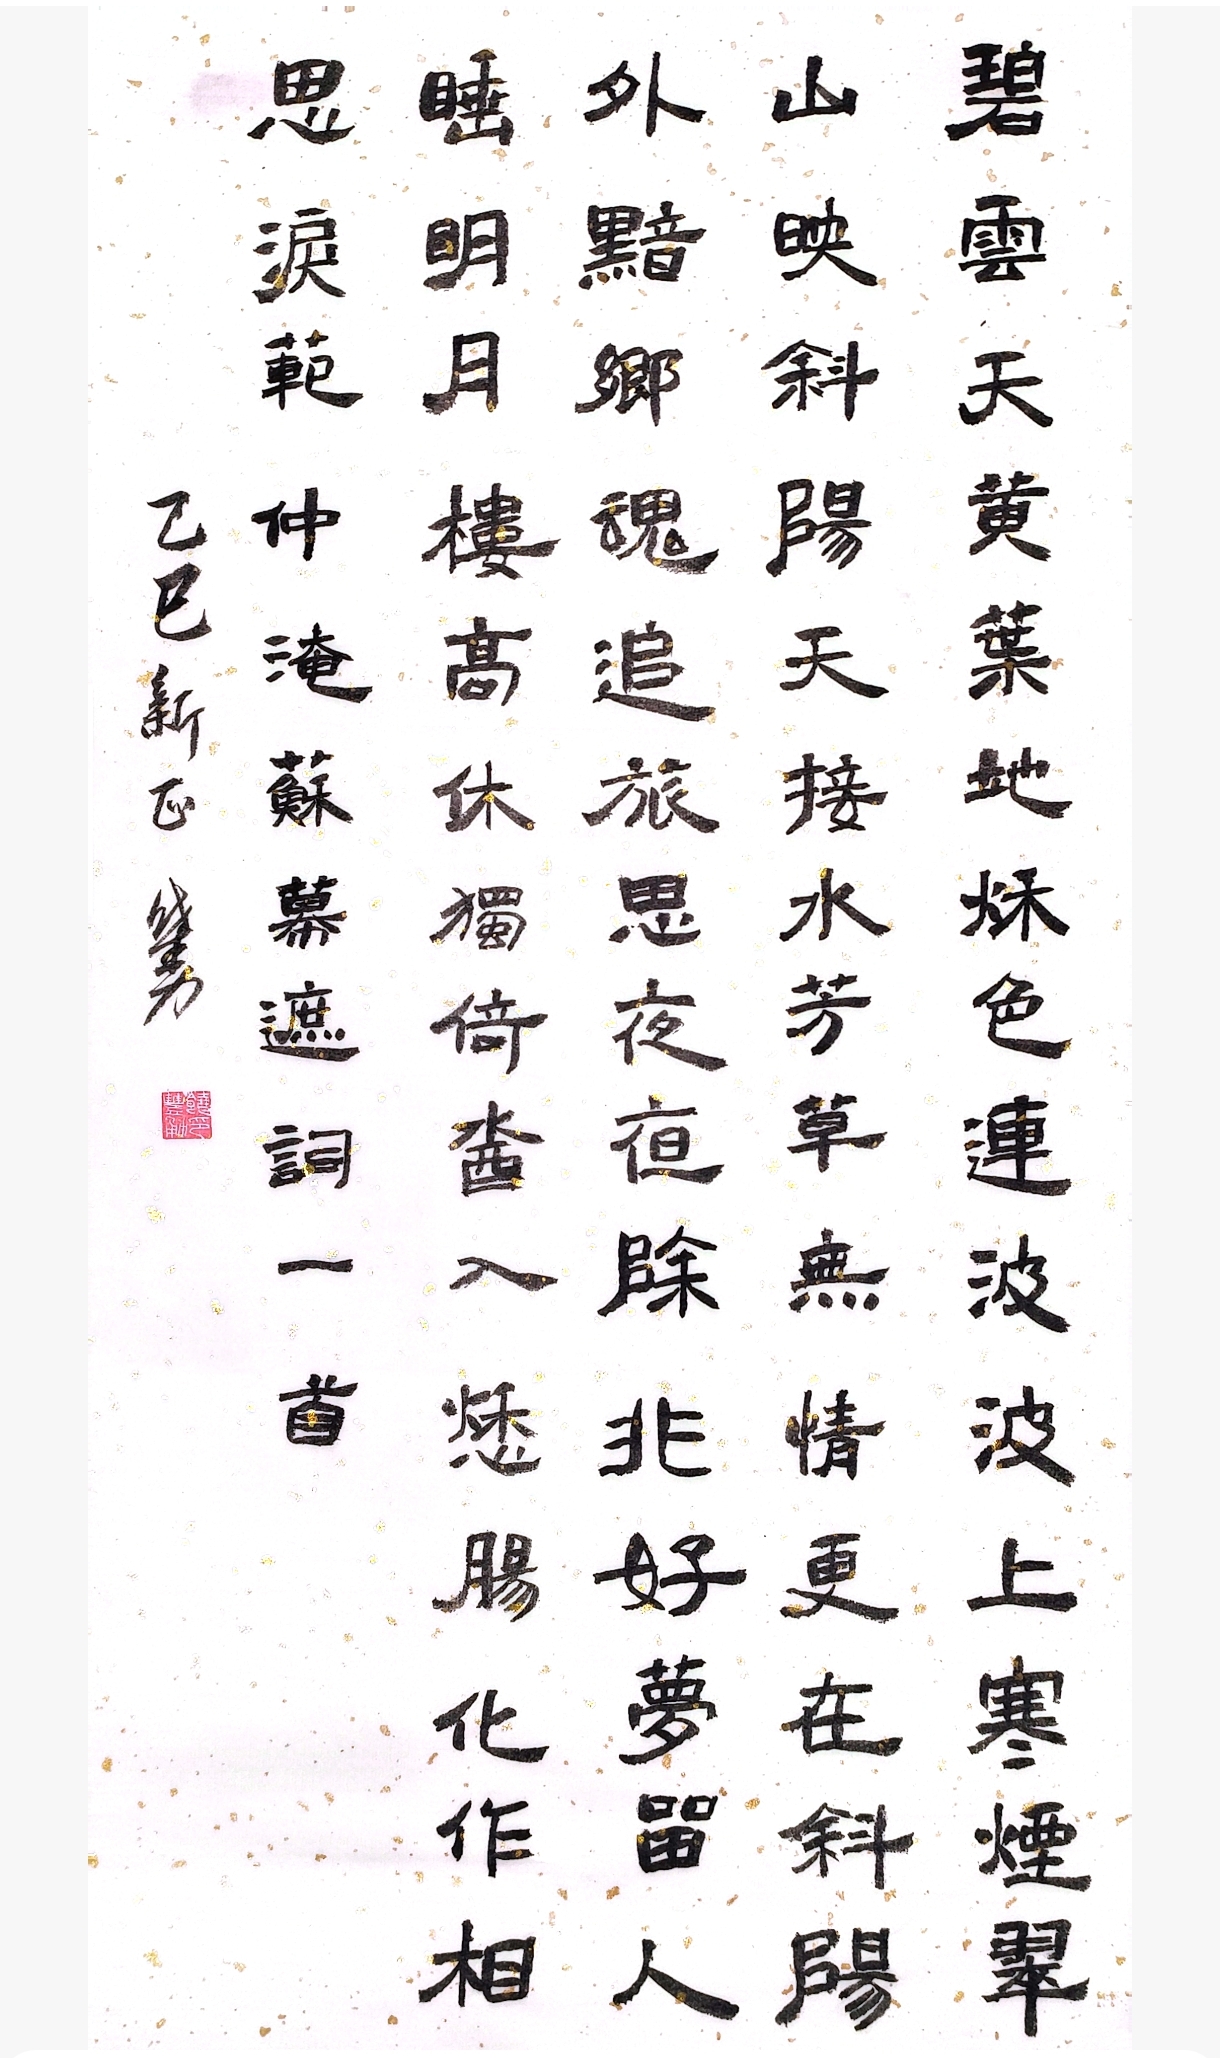 碧雲天黄葉地秋色連波波上寒煙翠
山映斜陽天接水芳草無情更在斜陽
外黯鄉魂追旅思夜夜除非好夢留人
睡明月樓高休獨倚酒入愁腸化作相
思淚範仲淹蘇幕遮詞一首
乙巳新正